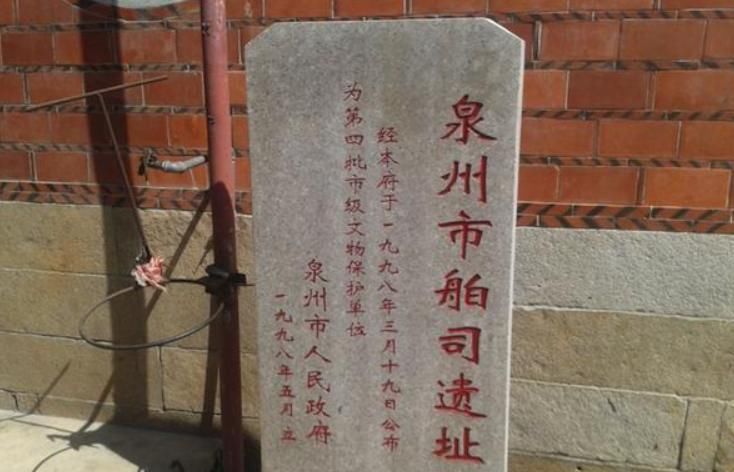 泉州市舶司遗址
经本府于一九九八年三月十九日公布
为第四批市级文物保护单位
泉州市人民政府
一九九八年五月立